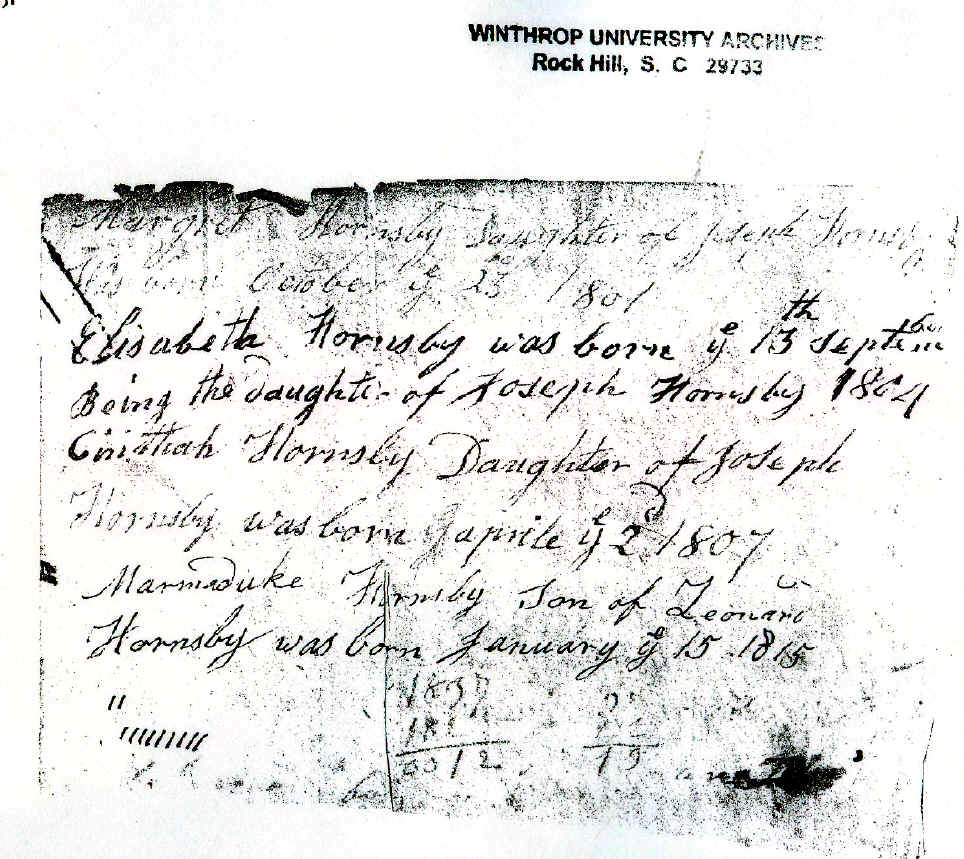 WINTHROP UNIVERSITY ARCHIVES
Rock Hill, S. C 29733
Margret Hornsby Daughter of Joseph Hornsby
Was born October ye 23 1801
Elisabeth Hornsby was born ye 13th September
Being the daughter of Joseph Hornsby 1804
Hornsby Daughter of Joseph
Hornsby was born aprile ye 2d 1807
Marmaduke Hornsby Son of Leonard
Hornsby was born January ye 15 1815